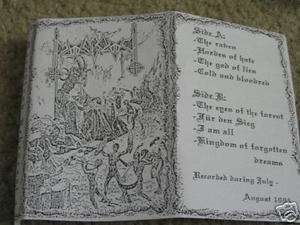 Side A:
-The raven
-Hordes of hate
-The god of lies
-Cold and bloodred
Side B:
-The eyes of the forest
-Für den Sieg
-I am all
-Kingdom of forgotten
dreams
Recorded during July -
August